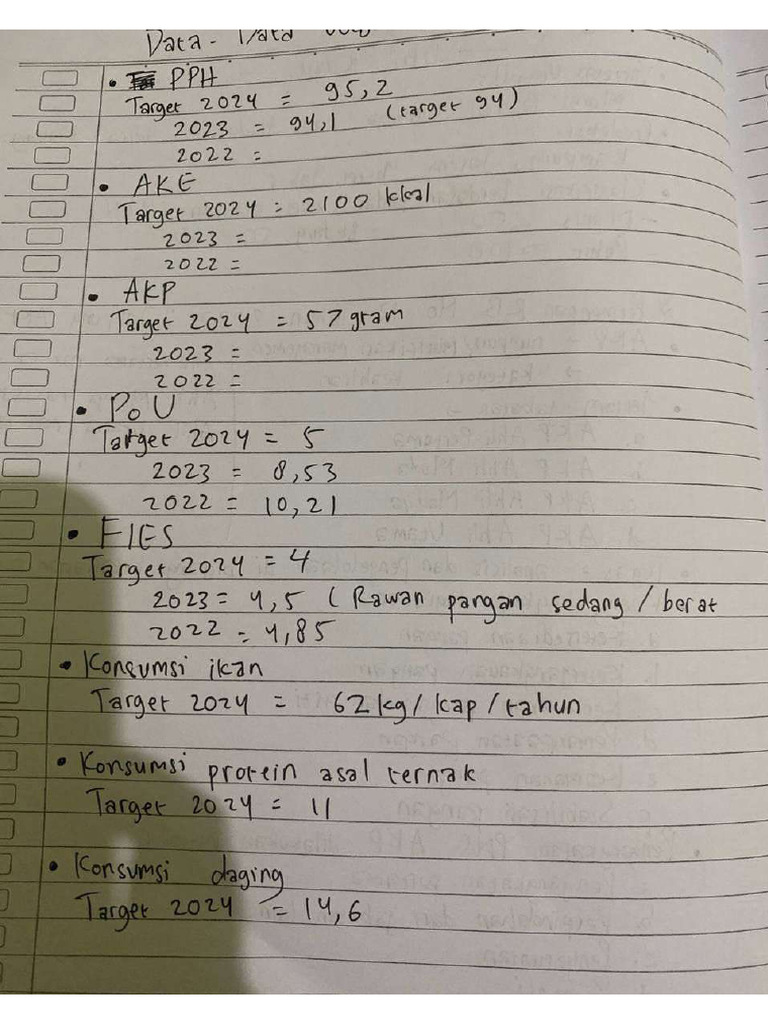 Data - Data
• PPH
Target 2024 = 95,2
2023 = 94,1 (target 94)
2022 =
• AKE
Target 2024 = 2100 kkal
2023 =
2022 =
• AKP
Target 2024 = 57 gram
2023 =
2022 =
• PoU
Target 2024 = 5
2023 = 8,53
2022 = 10,21
• FIES
Target 2024 = 4
2023 = 4,5 (Rawan pangan sedang / berat
2022 = 4,85
• Konsumsi ikan
Target 2024 = 62 kg / kap / tahun
• Konsumsi protein asal ternak
Target 2024 = 11
• Konsumsi daging
Target 2024 = 14,6